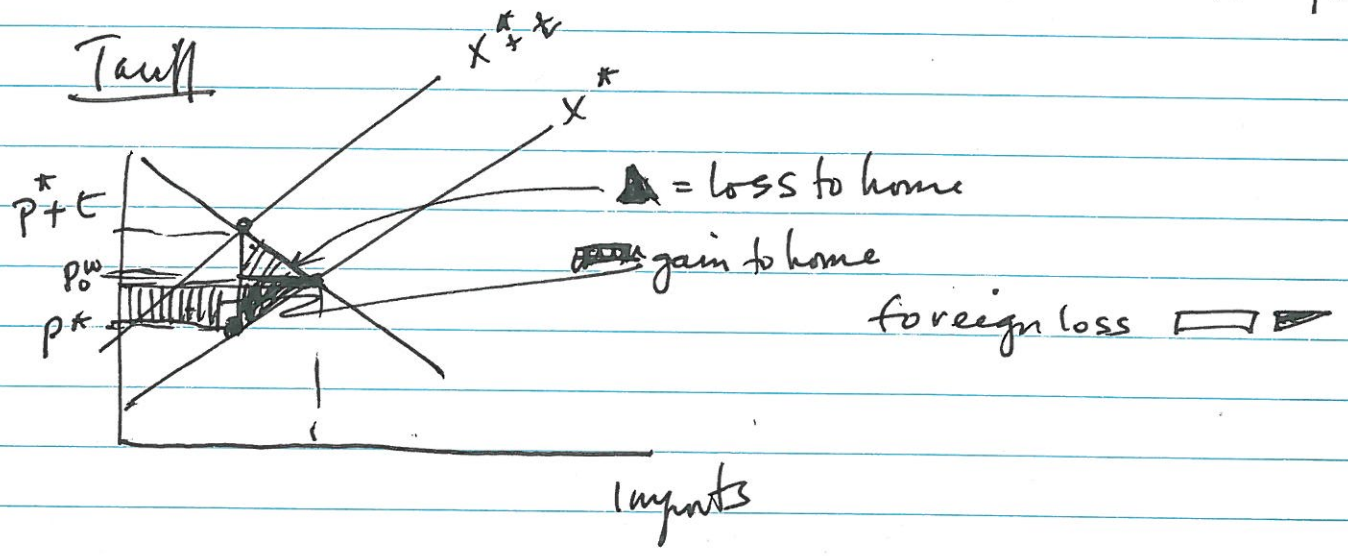 Tariff
X* + t
X*
p* + t
p₀ʷ
p*
= loss to home
gain to home
foreign loss
Imports